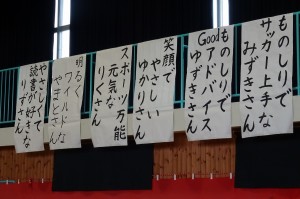 ものしりで
サッカー上手な
みずきさん
ものしりで
Good
アドバイス
ゆずきさん
笑顔で
やさしい
ゆかりさん
スポーツ万能
元気な
りくさん
明るく
ワイルドな
やまとさん
やさしくて
読書が好きな
りずさん